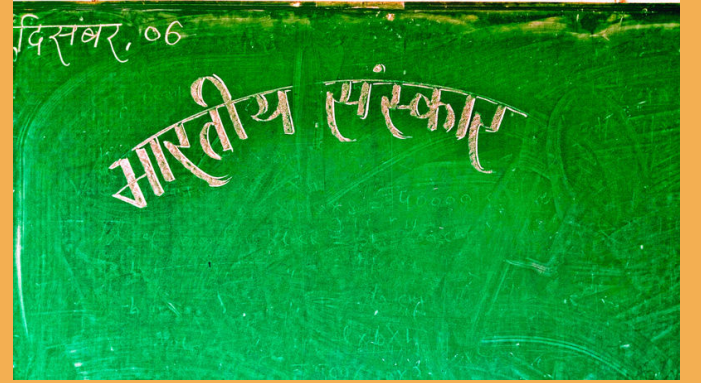 दिसंबर. ०६
भारतीय संस्कार